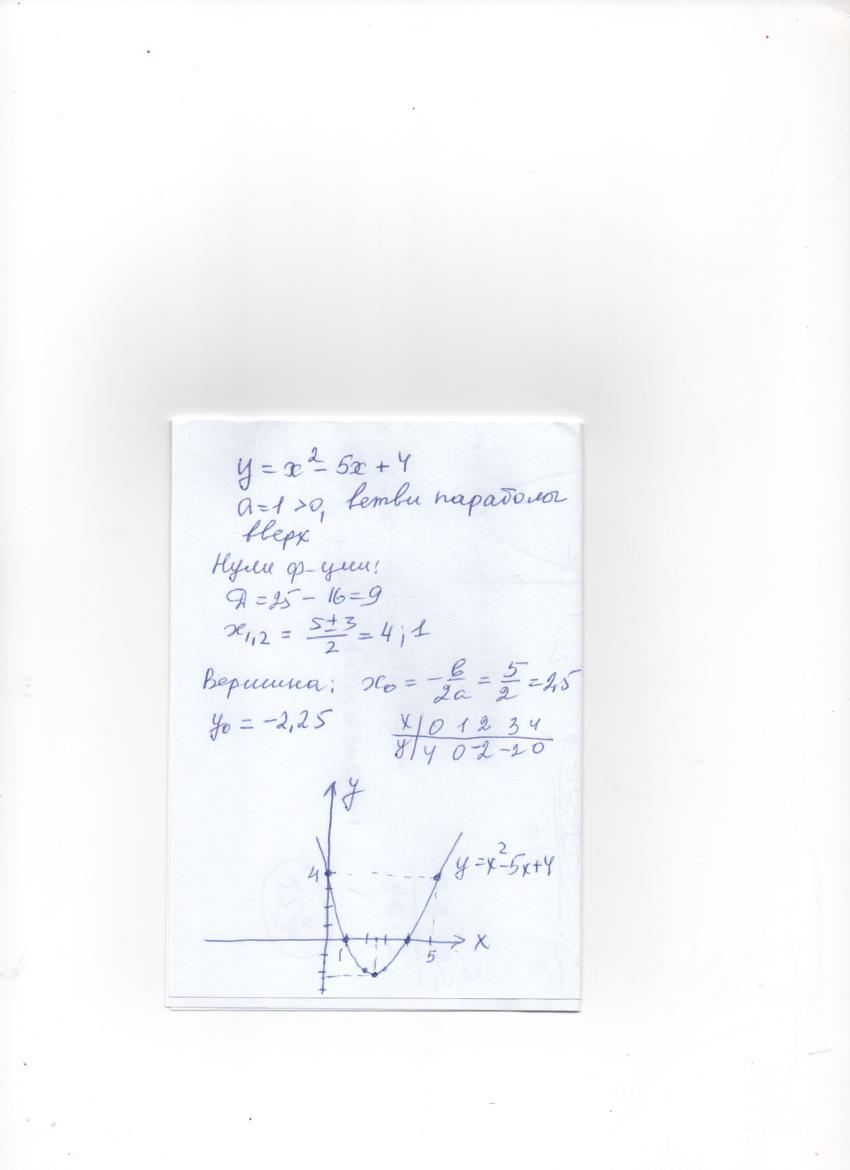 y = x² - 5x + 4
a = 1 > 0, ветви параболы
вверх
Нули ф-ции:
Д = 25 - 16 = 9
x₁,₂ = (5 ± 3)/2 = 4; 1
Вершина: x₀ = -в/2a = 5/2 = 2,5
y₀ = -2,25
x | 0 1 2 3 4
y | 4 0 -2 -2 0
y
4
y = x² - 5x + 4
x
1
5